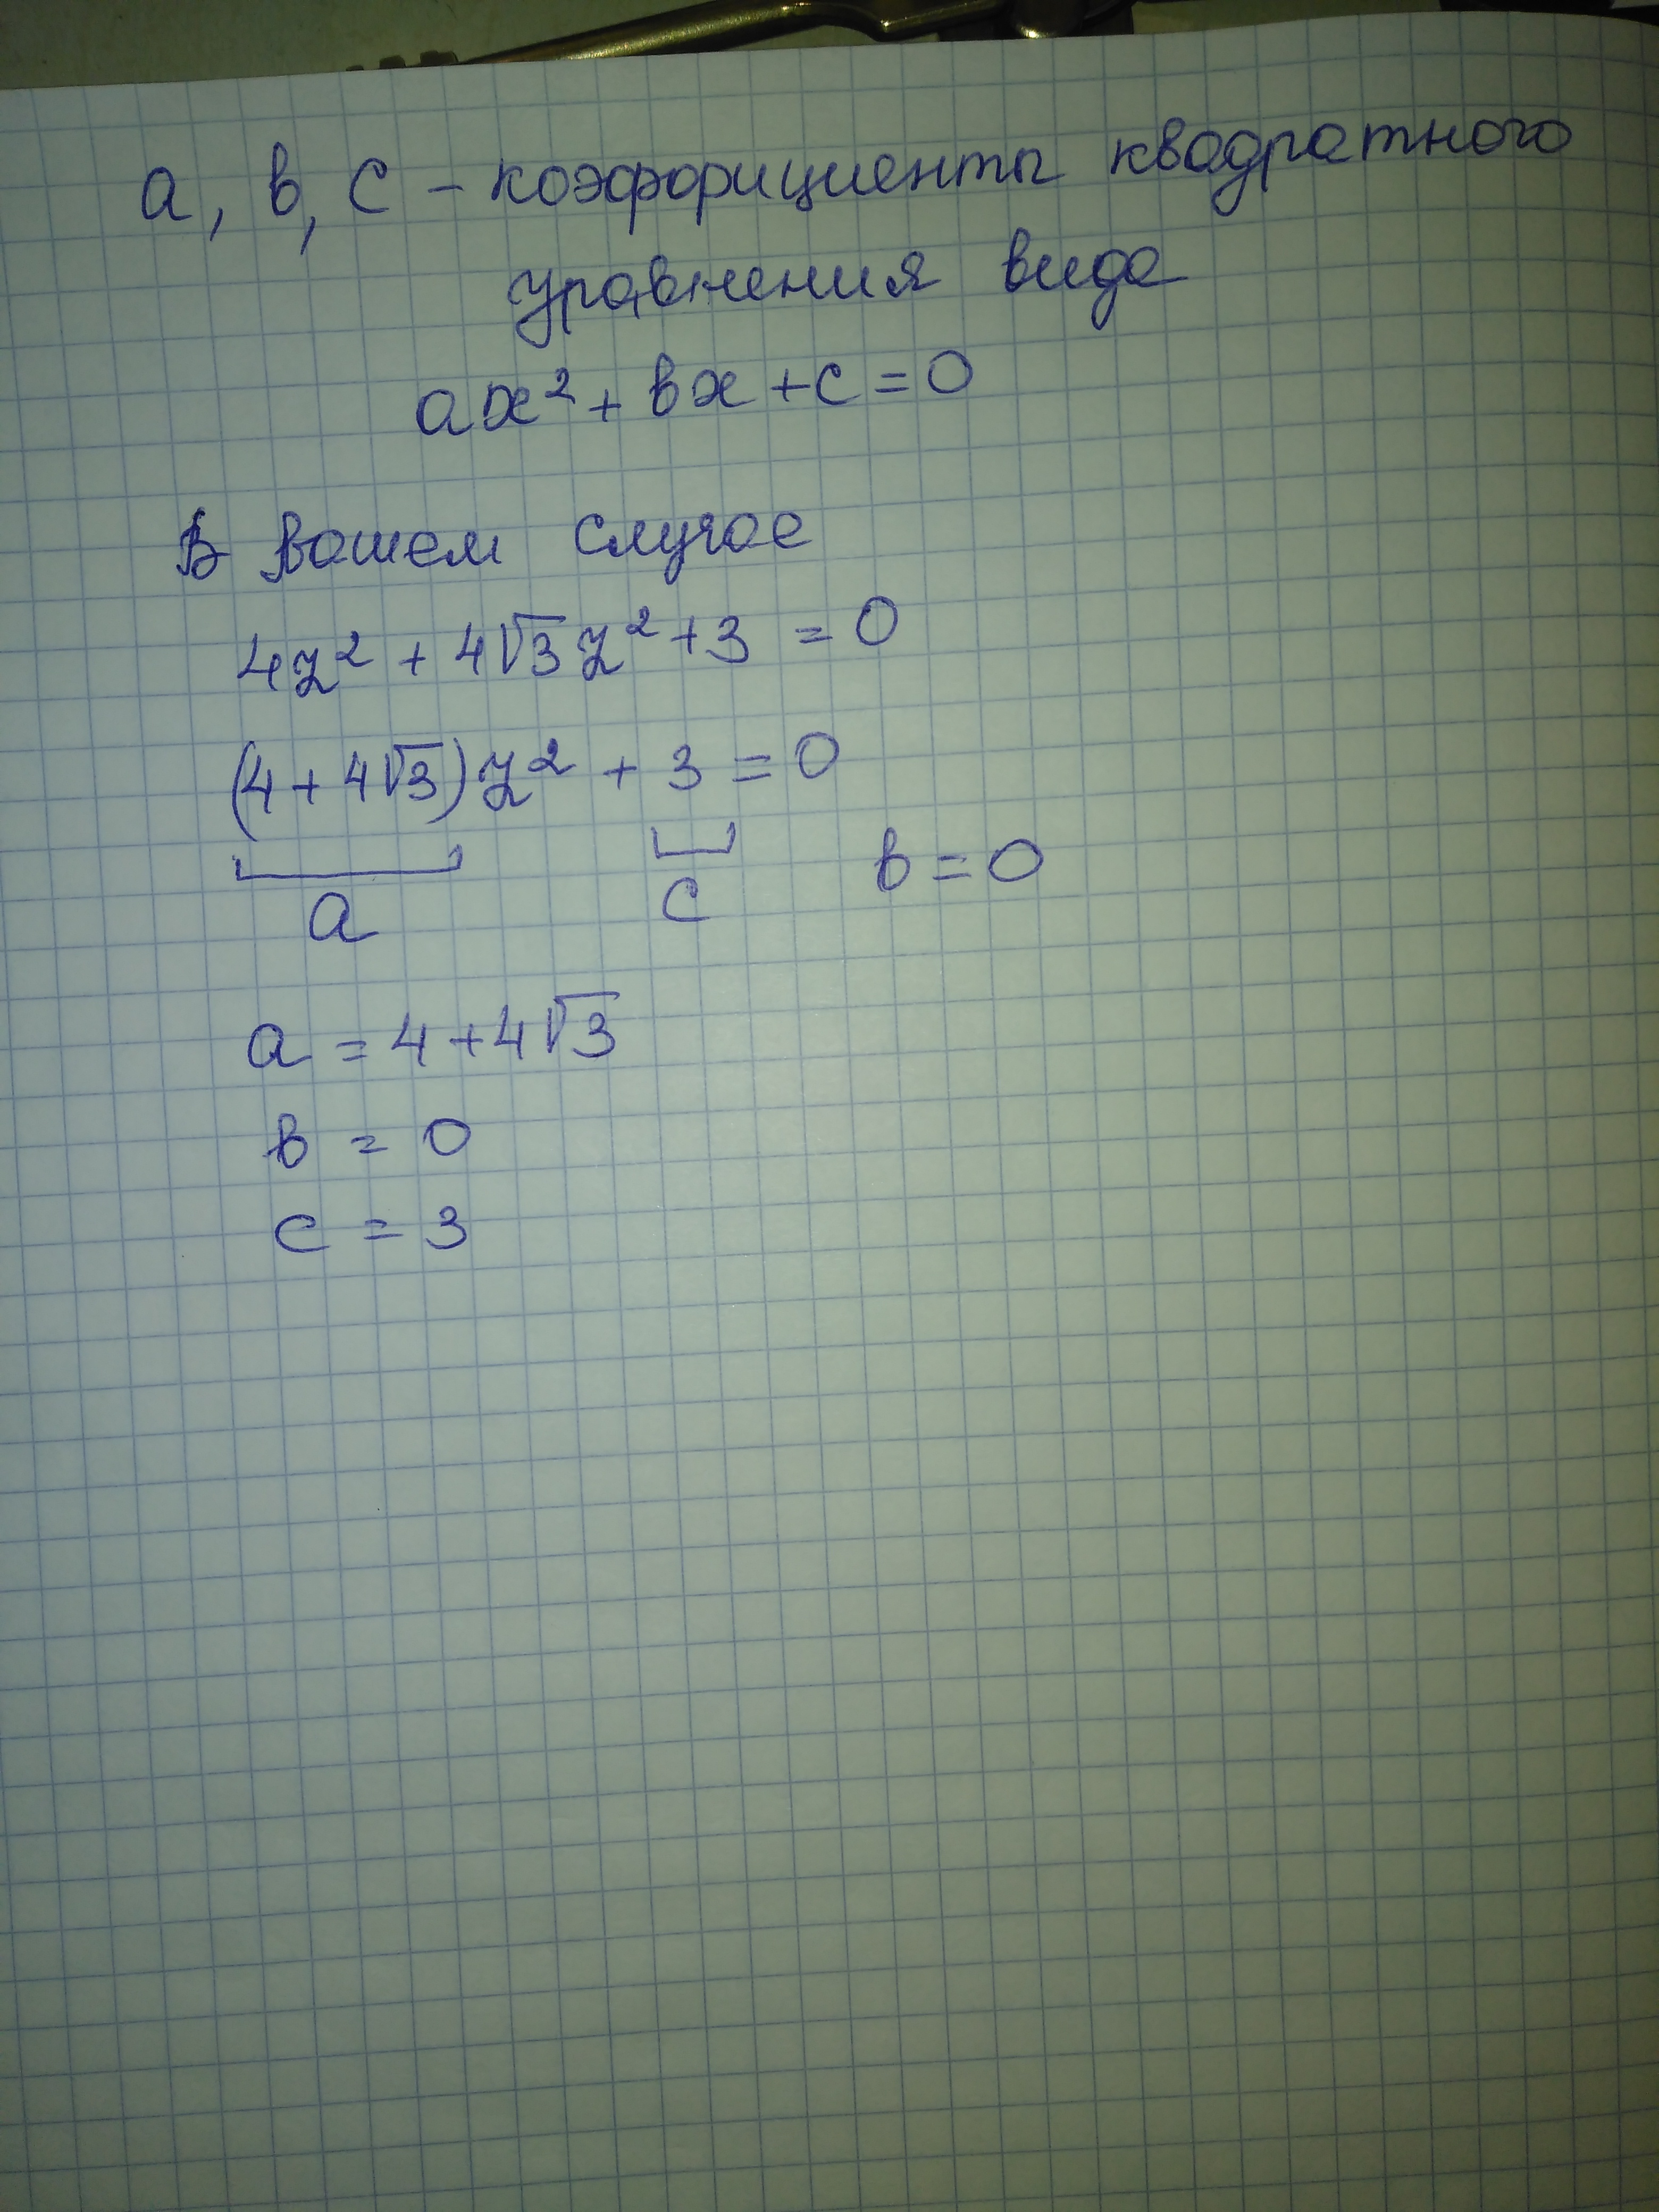 а, в, с - коэффициенты квадратного
уравнения вида
ax² + вx + c = 0
В вашем случае
4z² + 4√3z² + 3 = 0
(4 + 4√3)z² + 3 = 0
a c в = 0
a = 4 + 4√3
в = 0
c = 3